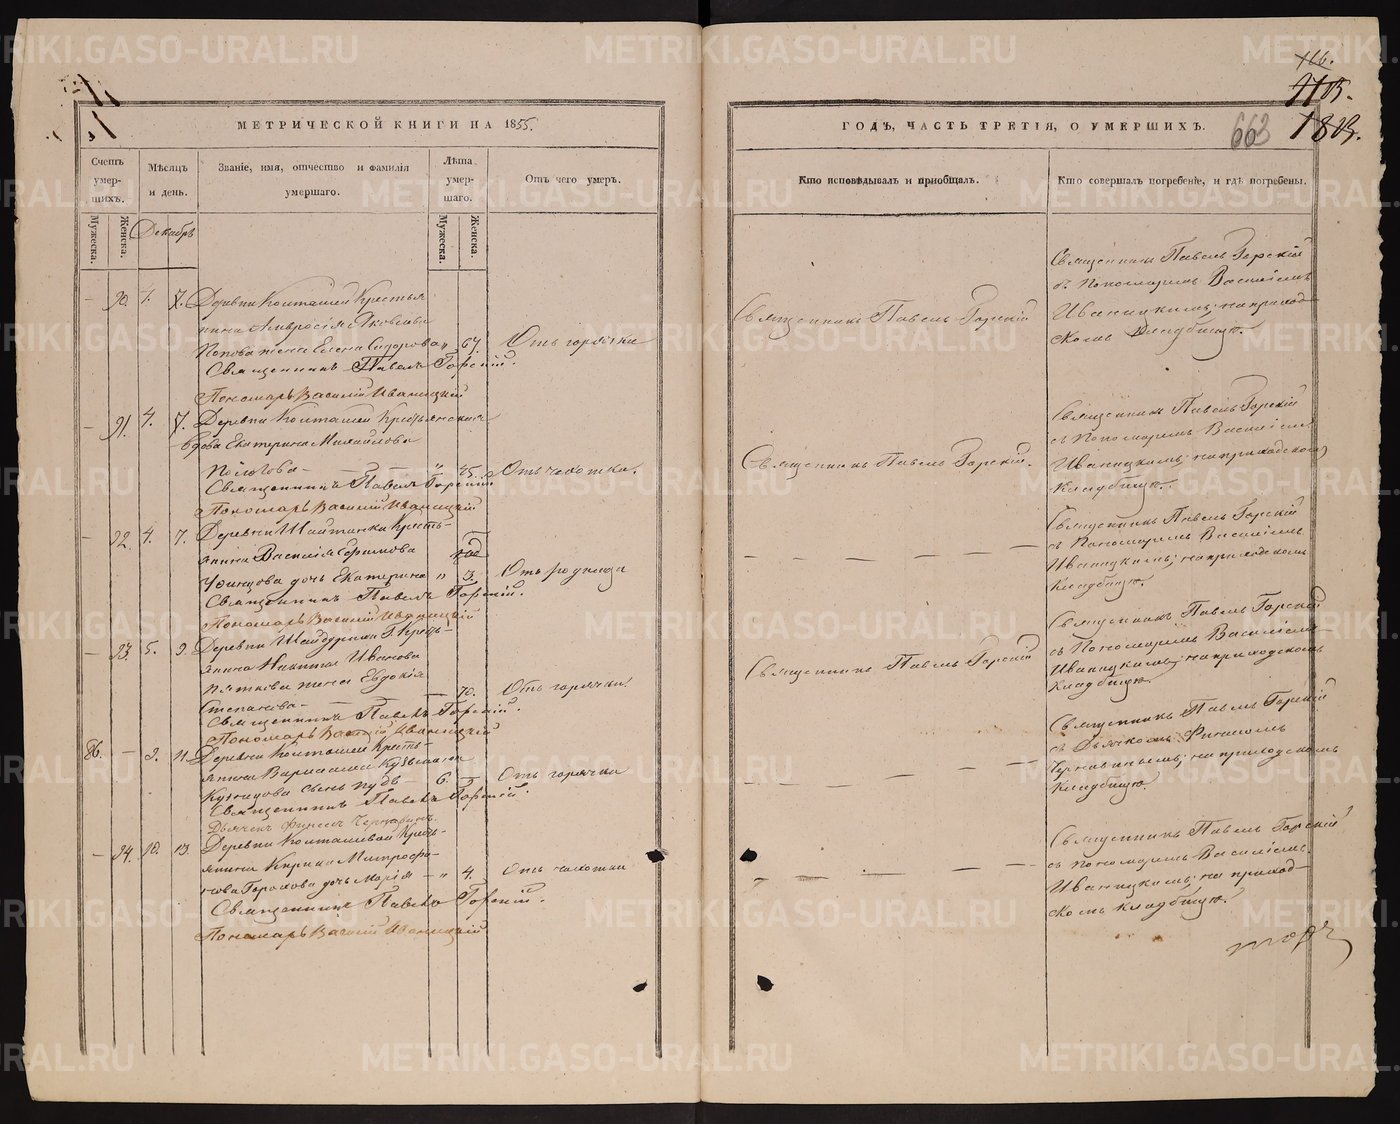 166.
1105.
1809.
663
МЕТРИЧЕСКОЙ КНИГИ НА 1855.
Счетъ умер-шихъ.
Мужеска.
Женска.
Мѣсяцъ и день.
Званіе, имя, отчество и фамилія умершаго.
Лѣта умер-шаго.
Мужеска.
Женска.
Отъ чего умеръ.
Декабрь
90. 7.
Деревни Колташей Крестья
нина Амвросія Яковлева
Попова жена Елена Сидорова „ 67. Отъ горячки
Священникъ Павелъ Горскій.
Пономарь Василій Иваницкій
91. 4. 7. Деревни Колташей Крестьянская
вдова Екатерина Михайлова
„ 45. Отъ чахотки.
Священникъ Павелъ Горскій
Пономарь Василій Иваницкій
92. 4. 7. Деревни Шайтанки Кресть-
янина Василія Ефимова
дочь Екатерина „ 3. Отъ родимца
Священникъ Павелъ Горскій.
Пономарь Василій Иваницкій
93. 5. 9. Деревни Кресть-
янина Никиты Иванова
Пяткова жена Евдокія
Степанова — 70. Отъ горячки.
Священникъ Павелъ Горскій.
Пономарь Василій Иваницкій
86. — 9. 11. Деревни Колташей Кресть-
янина
сынъ 6. Отъ горячки
Священникъ Павелъ Горскій.
Дьячекъ Финесъ
94. 10. 13. Деревни Кресть-
янина Кирила Митрофа-
нова Горохова дочь Марія „ 4. Отъ чахотки
Священникъ Павелъ Горскій.
Пономарь Василій Иваницкій
ГОДЪ, ЧАСТЬ ТРЕТІЯ, О УМЕРШИХЪ.
Кто исповѣдывалъ и пріобщалъ.
Кто совершалъ погребеніе, и гдѣ погребены.
Священникъ Павелъ Горскій
Священникъ Павелъ Горскій
съ Пономаремъ Василіемъ
Иваницкимъ; на приход-
скомъ кладбищѣ.
Священникъ Павелъ Горскій.
Священникъ Павелъ Горскій
съ Пономаремъ Василіем
Иваницкимъ; на приходскомъ
кладбищѣ.
Священникъ Павелъ Горскій
съ Пономаремъ Василіемъ
Иваницкимъ; на приходскомъ
кладбищѣ.
Священникъ Павелъ Горскій
Священникъ Павелъ Горскій
съ Пономаремъ Василіемъ
Иваницкимъ; на приходскомъ
кладбищѣ.
Священникъ Павелъ Горскій
съ Дьячкомъ Финесомъ
на приходскомъ
кладбищѣ.
Священникъ Павелъ Горскій
съ пономаремъ Василіемъ
Иваницкимъ; на приход-
скомъ кладбищѣ.
METRIKI.GASO-URAL.RU